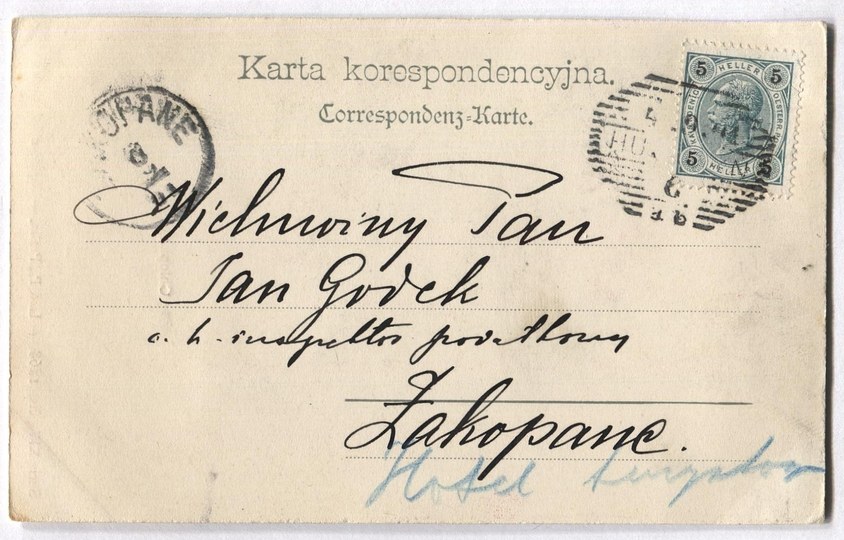 Karta korespondencyjna.
Correspondenz-Karte.
5 HELLER 5
5
ZAKOPANE
Wielmożny Pan
Jan Godek
c. k. inspektor podatkowy
Zakopane.
Hotel